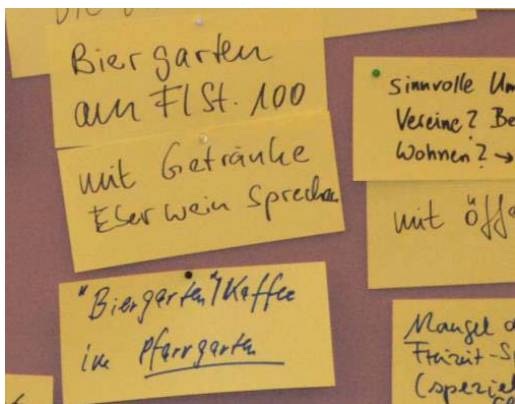 Biergarten
am FlSt. 100
mit Getränke
Eserwein sprechen
"Biergarten"/Kaffee
im Pfarrgarten
sinnvolle Um
Vereine? Be
Wohnen? →
mit Öffe
Mangel d
Freizeit-S
(speziel